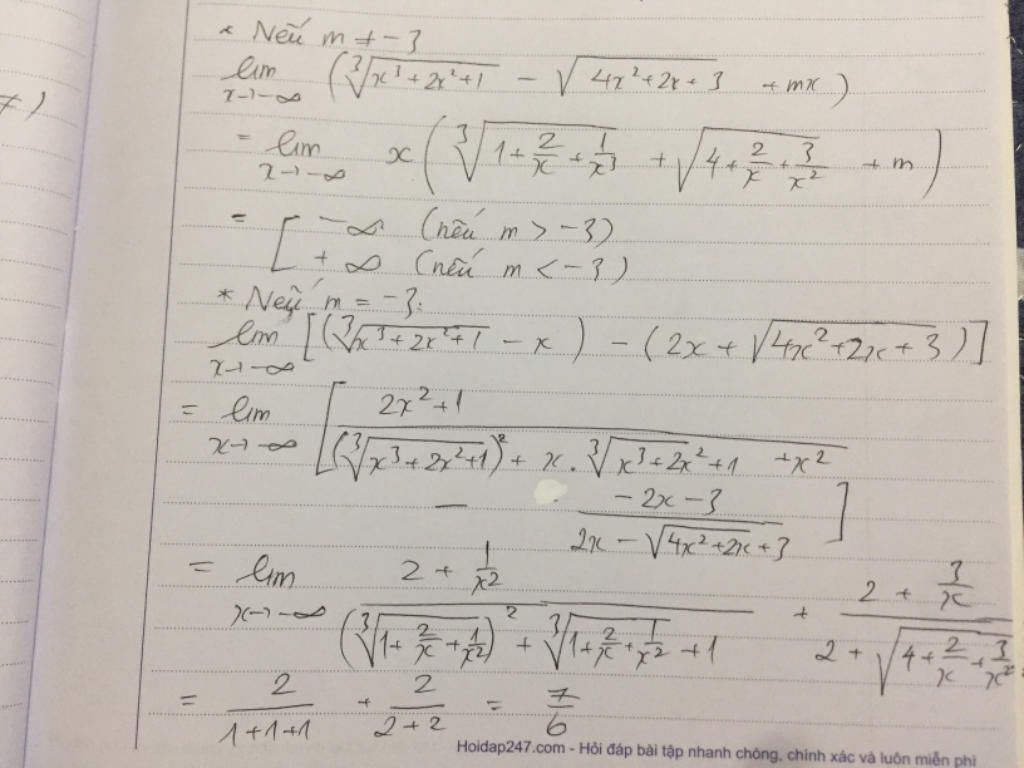 * Nếu m ≠ -3
lim x→-∞ (∛(x³+2x²+1) - √(4x²+2x+3) + mx)
= lim x→-∞ x(∛(1+2/x+1/x³) + √(4+2/x+3/x²) + m)
= [ -∞ (nếu m > -3)
+∞ (nếu m < -3)
* Nếu m = -3:
lim x→-∞ [(∛(x³+2x²+1) - x) - (2x+√(4x²+2x+3))]
= lim x→-∞ [ (2x²+1)/((∛(x³+2x²+1))² + x.∛(x³+2x²+1) + x²)
- (-2x-3)/(2x-√(4x²+2x+3)) ]
= lim x→-∞ (2+1/x²)/((∛(1+2/x+1/x²))² + ∛(1+2/x+1/x²) + 1) + (2+3/x)/(2+√(4+2/x+3/x²))
= 2/(1+1+1) + 2/(2+2) = 7/6
Hoidap247.com - Hỏi đáp bài tập nhanh chóng, chính xác và luôn miễn phí